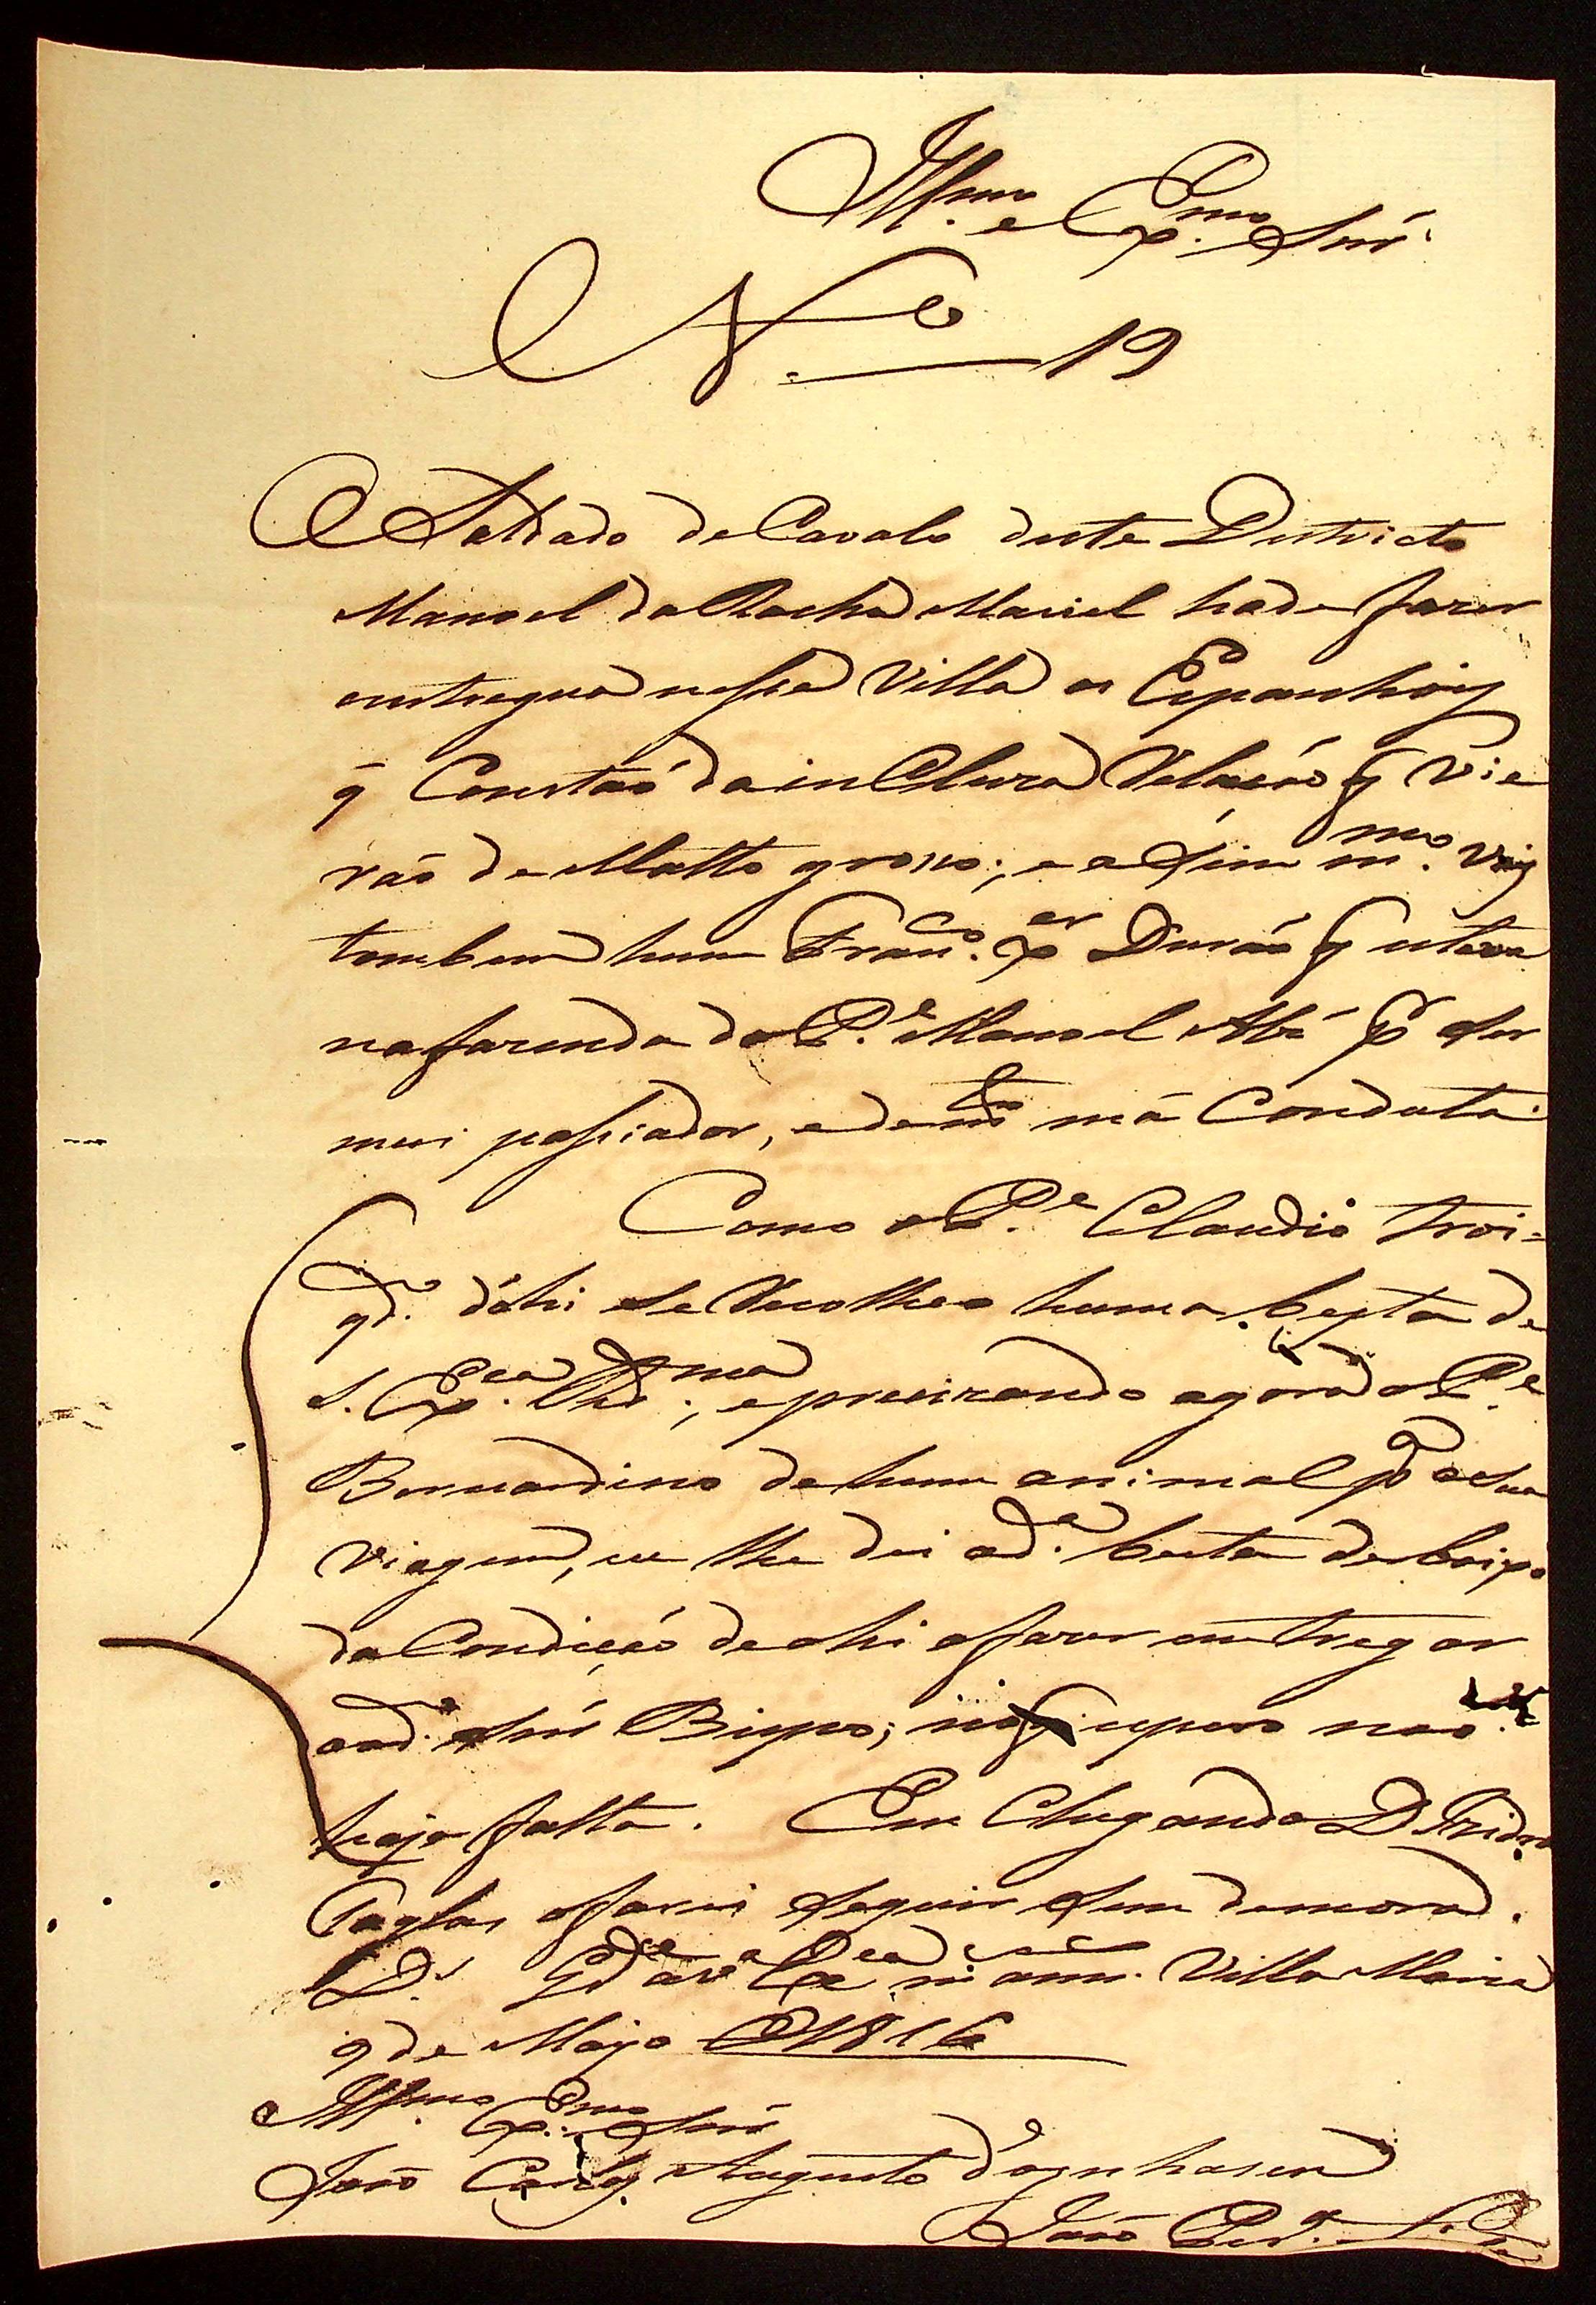 Illmo. e Exmo. Snr.
No. 19
O Soldado de Cavalo deste Destricto
Manoel da Rocha Maciel hade fazer
entregua nessa Villa os Espanhois
q̃ Constaõ da incluza Relação q̃ Vie
rão de Matto groso; e asim mmo. vaj
tombem hum Franco. Xer Durão q̃ estava
na fazenda do Pe. Manoel Alz̃ pr ser
mui passiador, e de mto má Conduta.
Como o Pe. Claudio troi-
qdo. dáhi se Recolheo huma besta de
S. Exca. Rma.; e precizando agora o Pe.
Bernardino de hum animal pa a sua
viagem, eu lhe dei a da. besta debaixo
da Condição de ahi a fazer entregar
ao do. Snr Bispo; espero nao
haja falta. Em Chegando D.
a farei seguir sem demora.
Ds. Gde a V Exca ms. anns. Villa Maria
9 de Mayo D1816
Illmo. Exmo. Snr
João Carlos Augusto d'Oeynhasen
João